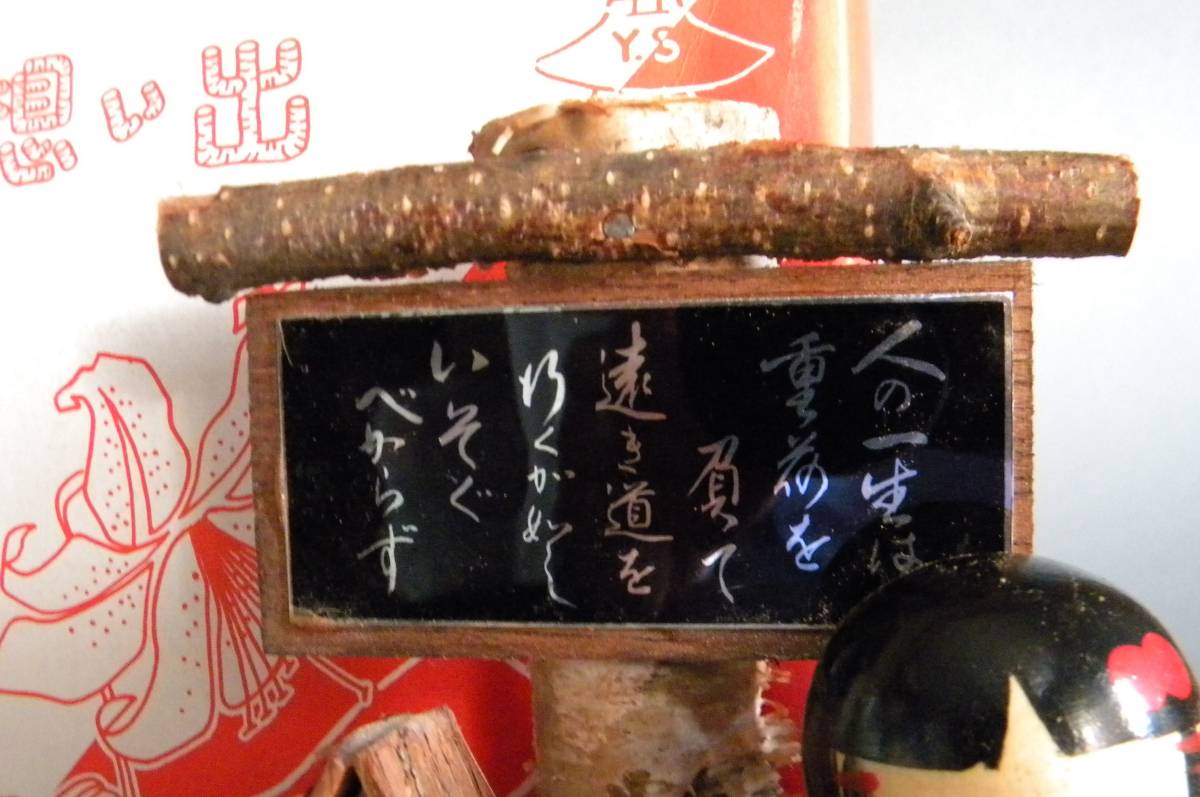 思い出
Y.S
人の一生は
重荷を
負て
遠き道を
行くが如し
いそぐ
べからず